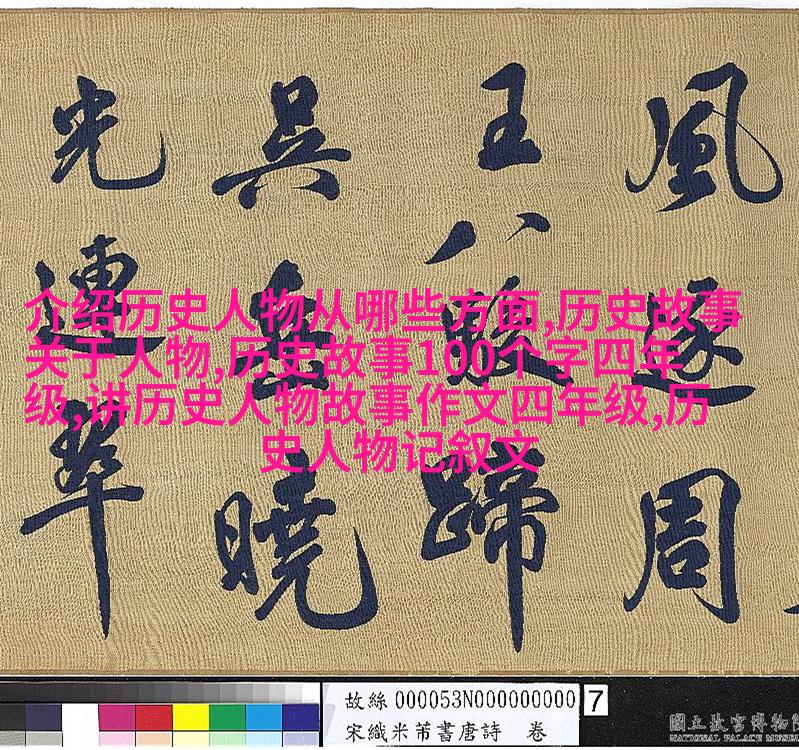 風逐周
王八駿蹄
吳岳曉
光連翠
介绍历史人物从哪些方面,历史故事
关于人物,历史故事100个字四年
级,讲历史人物故事作文四年级,历
史人物记叙文
故絲 000053N000000000 7
宋織米芾書唐詩 卷
國立故宮博物院
NATIONAL PALACE MUSEUM